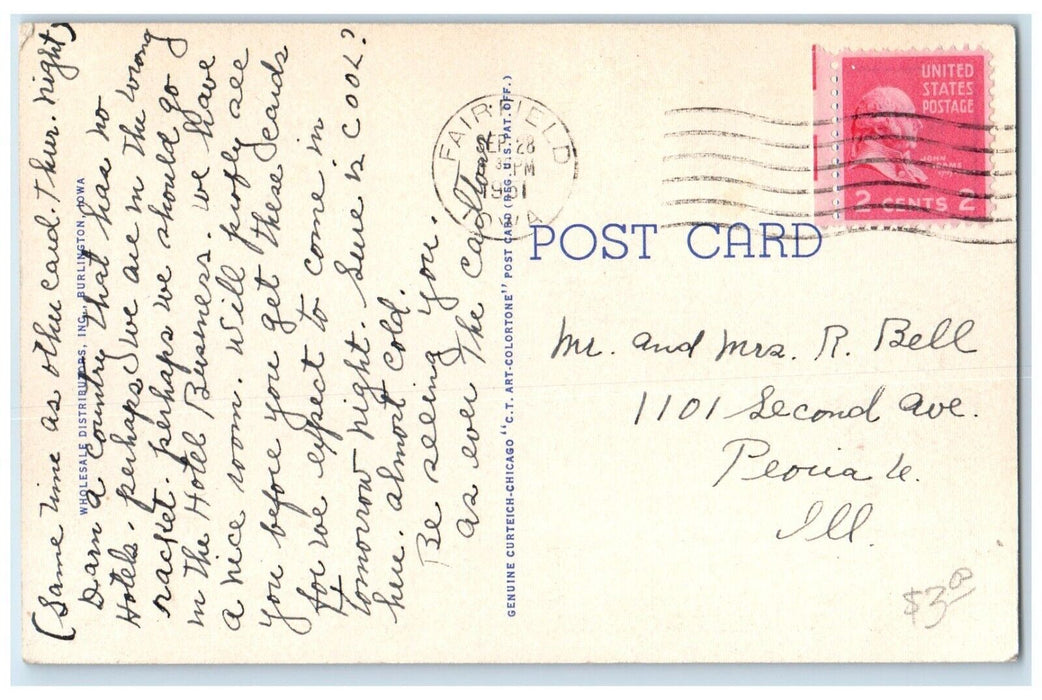 (Same time as other card. Thur. night)
Darn a country that has no
Hotels. perhaps we are in the wrong
racket. perhaps we should go
in the Hotel Business. we have
a nice room. will probly see
you before you get these cards
for we expect to come in
tomorrow night. Sure is COOL?
here. almost cold.
Be seeing you.
as ever The
WHOLESALE DISTRIBUTORS, INC., BURLINGTON, IOWA
GENUINE CURTEICH-CHICAGO "C.T. ART-COLORTONE" POST CARD (REG. U.S. PAT. OFF.)
FAIRFIELD
SEP 28
PM
1951
IOWA
UNITED
STATES
POSTAGE
JOHN
ADAMS
2 CENTS 2
POST CARD
Mr. and Mrs. R. Bell
1101 Second Ave.
Peoria
Ill.
$3.00